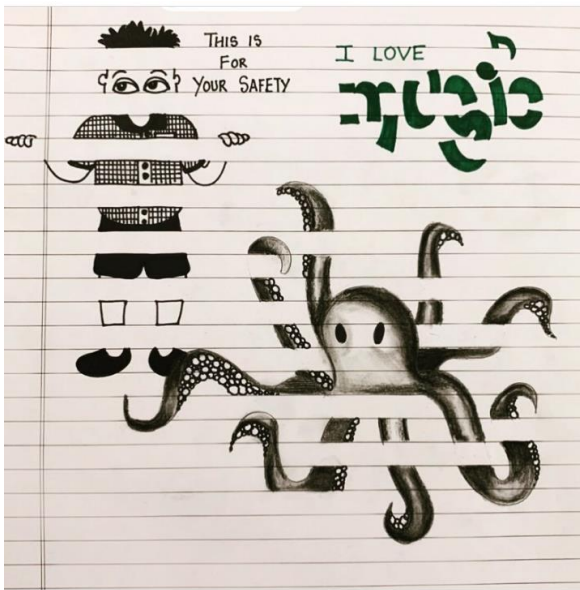 THIS IS
FOR
YOUR SAFETY
I LOVE
music